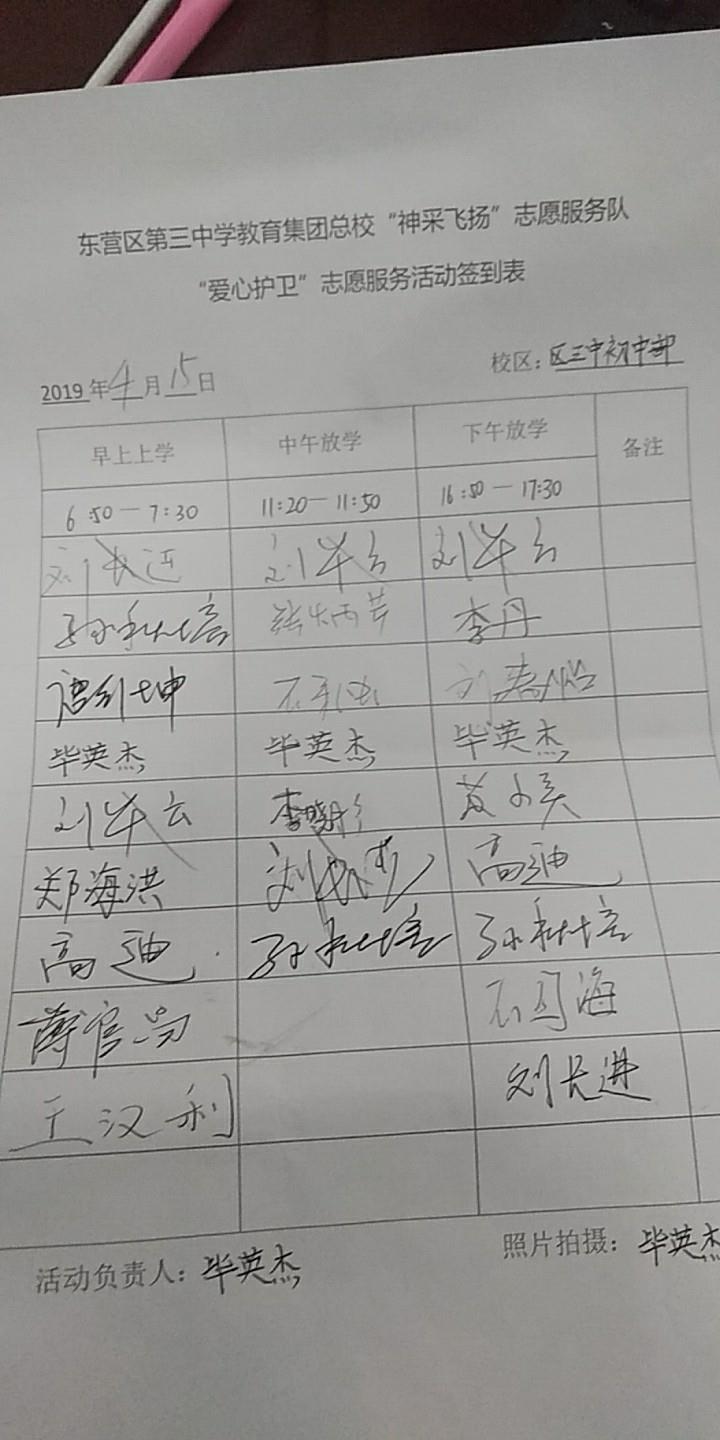 东营区第三中学教育集团总校“神采飞扬”志愿服务队
“爱心护卫”志愿服务活动签到表
2019年4月15日 校区：区三中初中部
早上上学 中午放学 下午放学 备注
6:50—7:30 11:20—11:50 16:50—17:30
刘长进 刘华云 刘华云
孙秋培 李丹
毕英杰 毕英杰 毕英杰
刘华云 李晓彤
郑海洪 高迪
高迪 孙秋培 孙秋培
王汉利 刘长进
活动负责人：毕英杰 照片拍摄：毕英杰